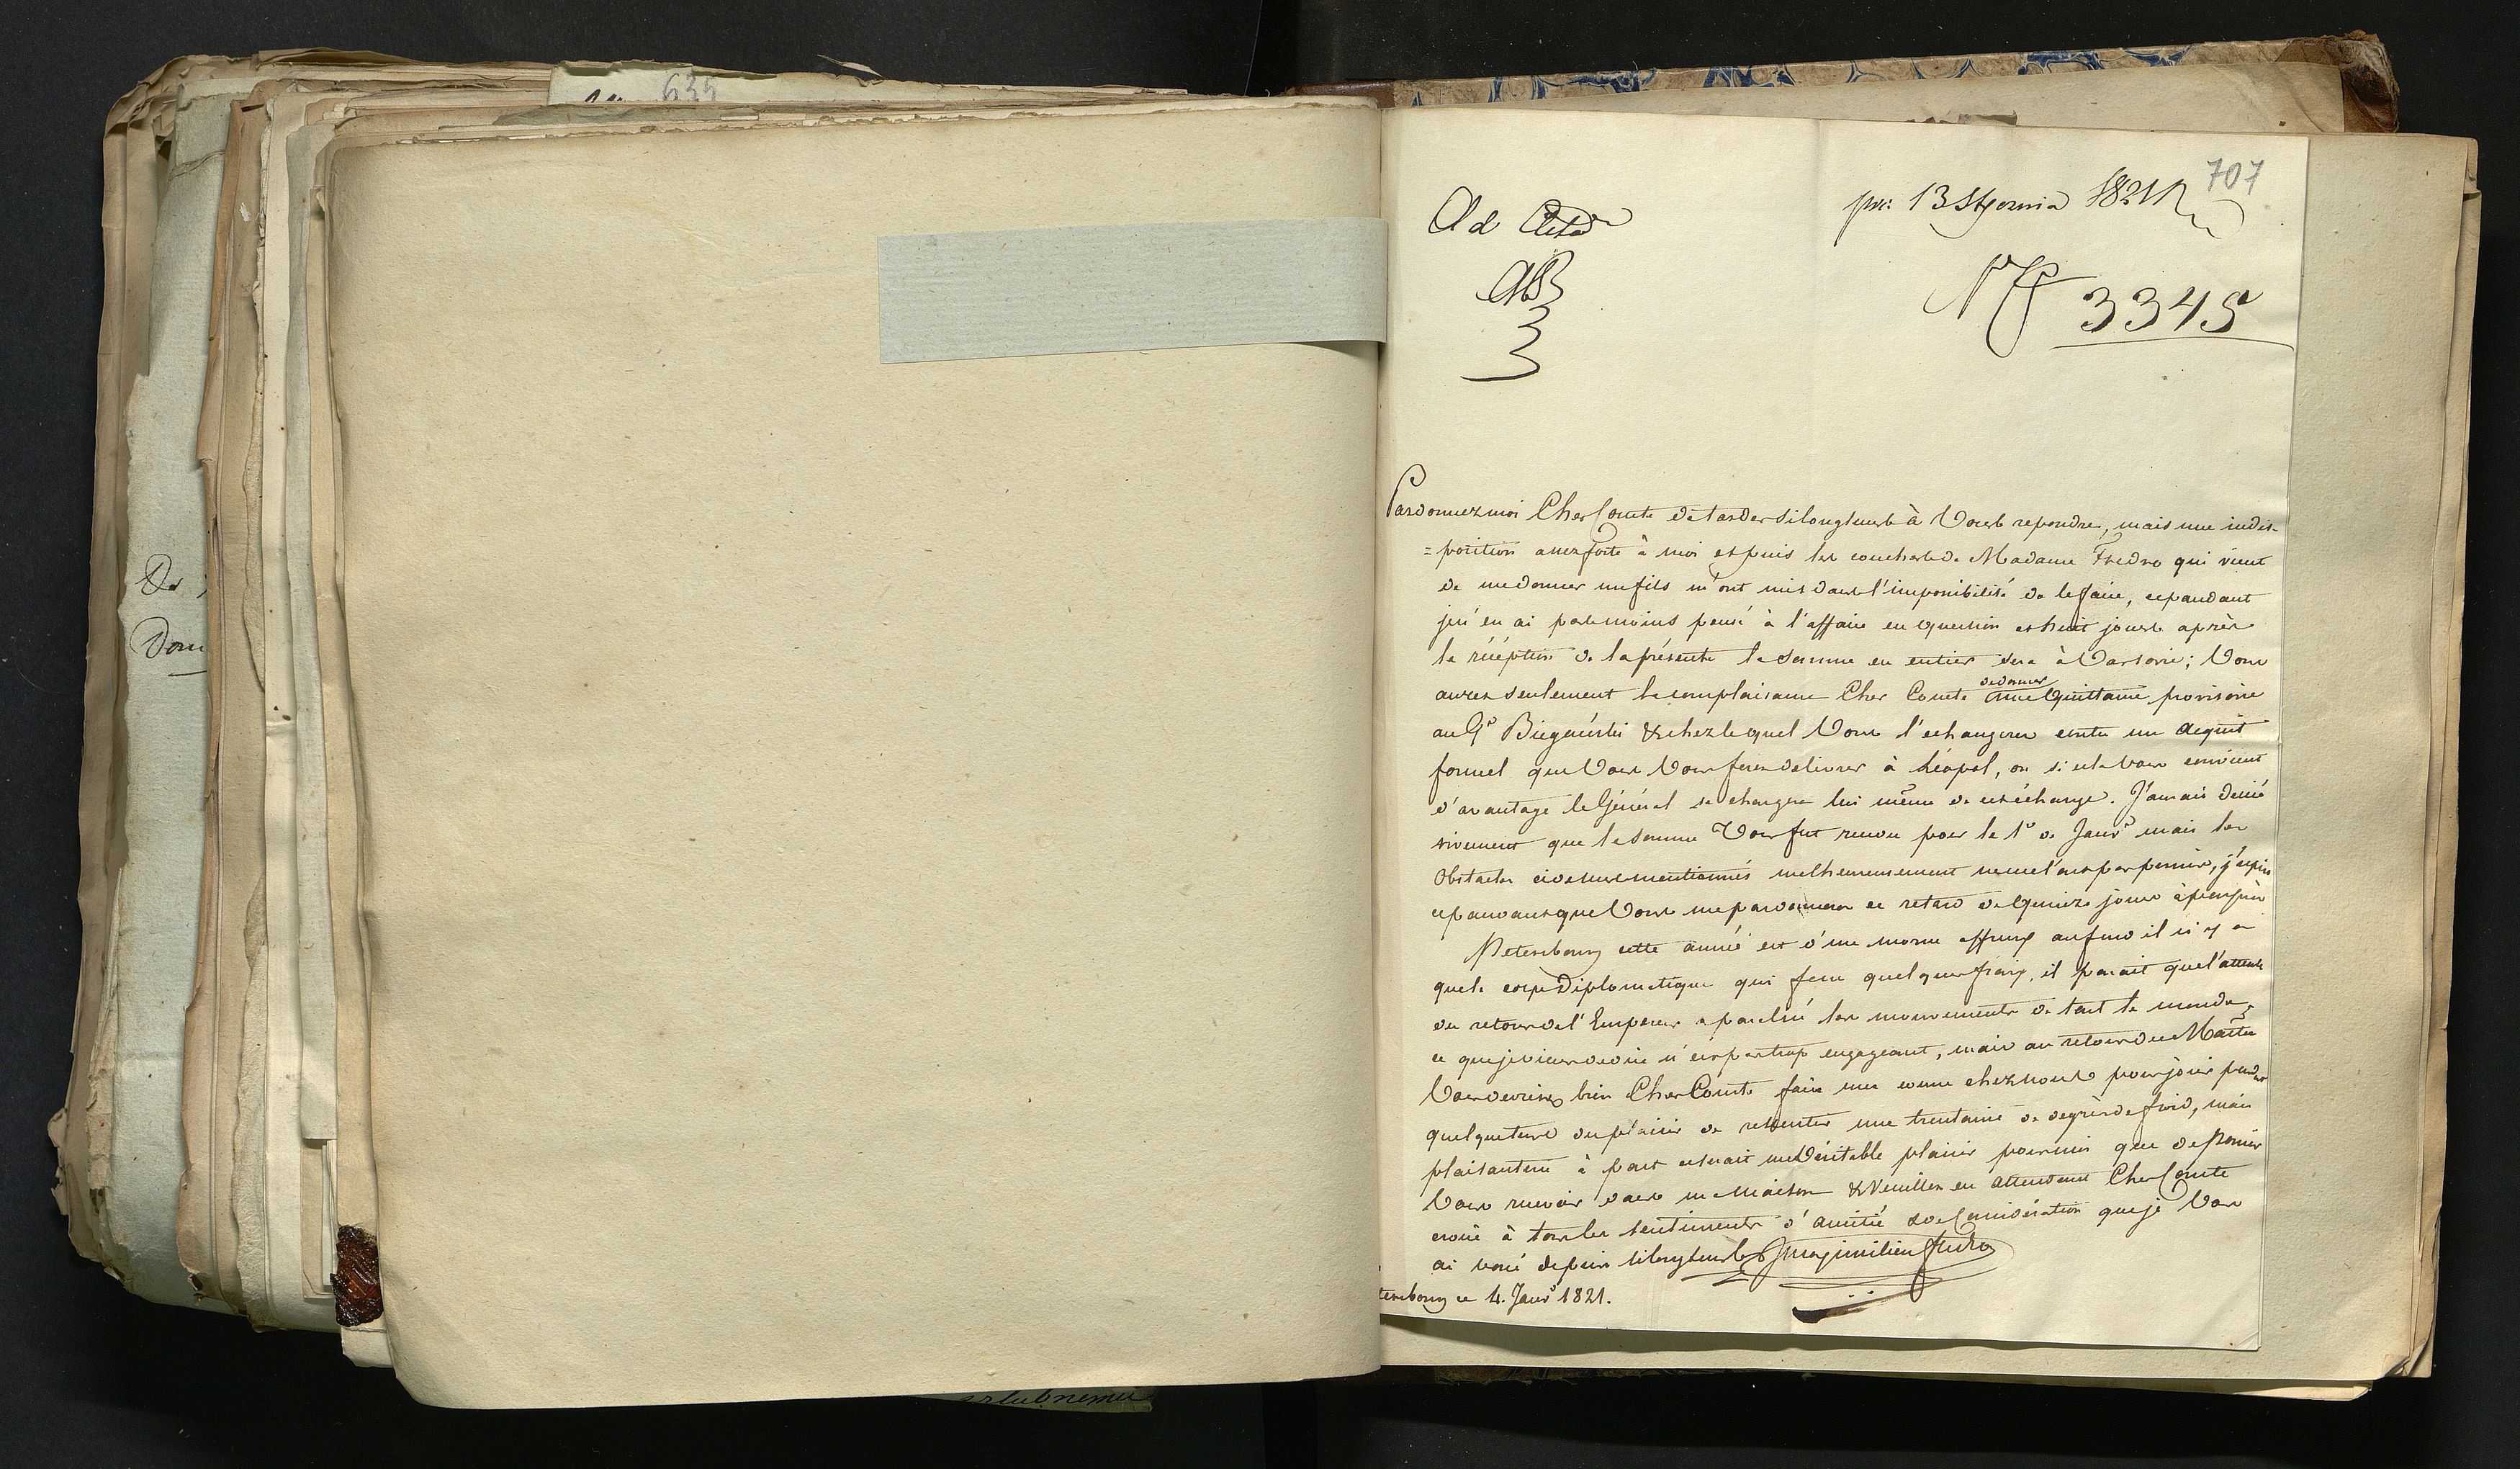 635
De
Dom
707
Ad Acta
pre: 13 Stycznia 1821
No 3345
Pardonnez moi Cher Comte de tarder si longtems à Vous repondre, mais une indis-
=position assez forte à moi et puis les couches de Madame Fredro qui vient
de me donner un fils m'ont mis dans l'impossibilité de le faire, cependant
je n'en ai pas moins pensé à l'affaire en question et huit jours après
la réception de la présente la somme en entier sera à Varsovie; Vous
aurez seulement la complaisance Cher Comte de donner une Quittance provisoire
au Gl Biegański & chez lequel Vous l'echangerez contre un acquit
formel que Vous Vous ferez delivrer à Léopol, ou si cela Vous convient
d'avantage le Général se chargera lui même de cet échange. J'aurais desiré
vivement que la somme Vous fut rendue pour le 1r de Janvr mais les
Obstacles ci dessus mentionnés malheureusement ne me l'ont pas permis, j'espère
cependant que Vous me pardonnerez ce retard de Quinze jours à peu près
Petersbourg cette année est d'un morne affreux au fond il n'y a
que le corps Diplomatique qui fasse quelques frais, il parait que l'attente
du retour de l'Empereur a paralisé les mouvements de tout le monde,
ce que je viens de dire n'est pas trop engageant, mais au retour du Maître
Vous devriez bien Cher Comte faire une course chez nous pour jouir pendant
quelque tems du plaisir de ressentir une trentaine de degrès de froid, mais
plaisanterie à part ce serait un Véritable plaisir pour moi que de pouvoir
Vous recevoir dans ma Maison & Veuillez en attendant Cher Comte
croire à tous les sentiments d'amitié & de Considération que je Vous
ai voué depuis si longtems Maximilien Fredro
tersbourg ce 4. Janvr 1821.